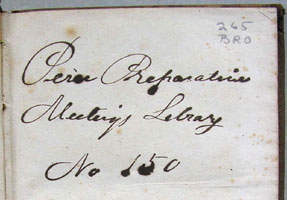 265
BRO
Peru Preparative
Meetings Library
No 150